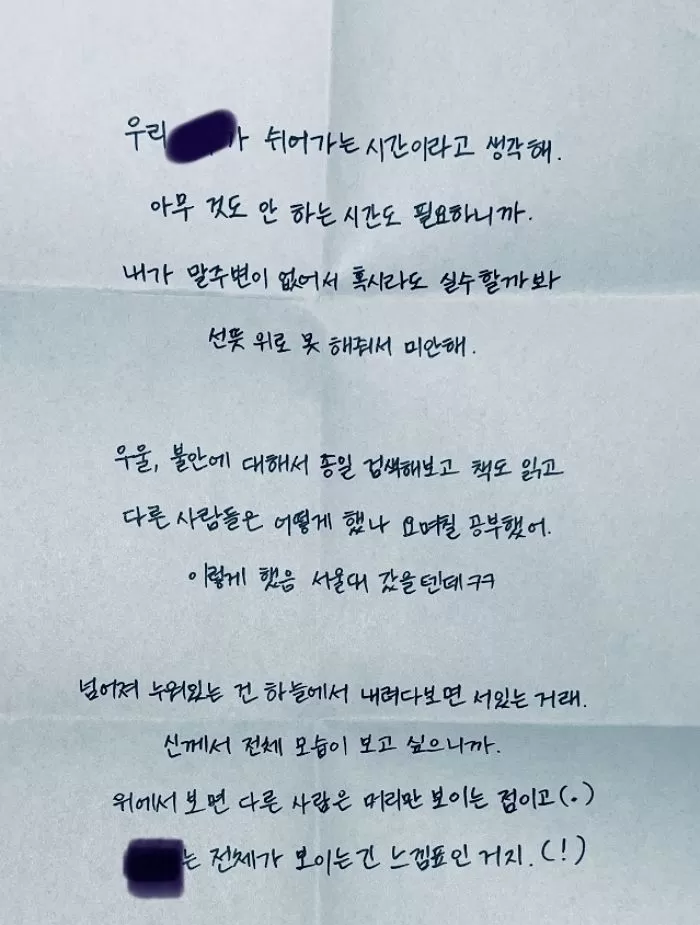 우리 가 쉬어가는 시간이라고 생각해.
아무 것도 안 하는 시간도 필요하니까.
내가 말주변이 없어서 혹시라도 실수할까봐
선뜻 위로 못 해줘서 미안해.
우울, 불안에 대해서 종일 검색해보고 책도 읽고
다른 사람들은 어떻게 했나 요며칠 공부했어.
이렇게 했음 서울대 갔을텐데 ㅋㅋ
넘어져 누워있는 건 하늘에서 내려다보면 서있는 거래.
신께서 전체 모습이 보고 싶으니까.
위에서 보면 다른 사람은 머리만 보이는 점이고(.)
는 전체가 보이는 긴 느낌표인 거지.(!)